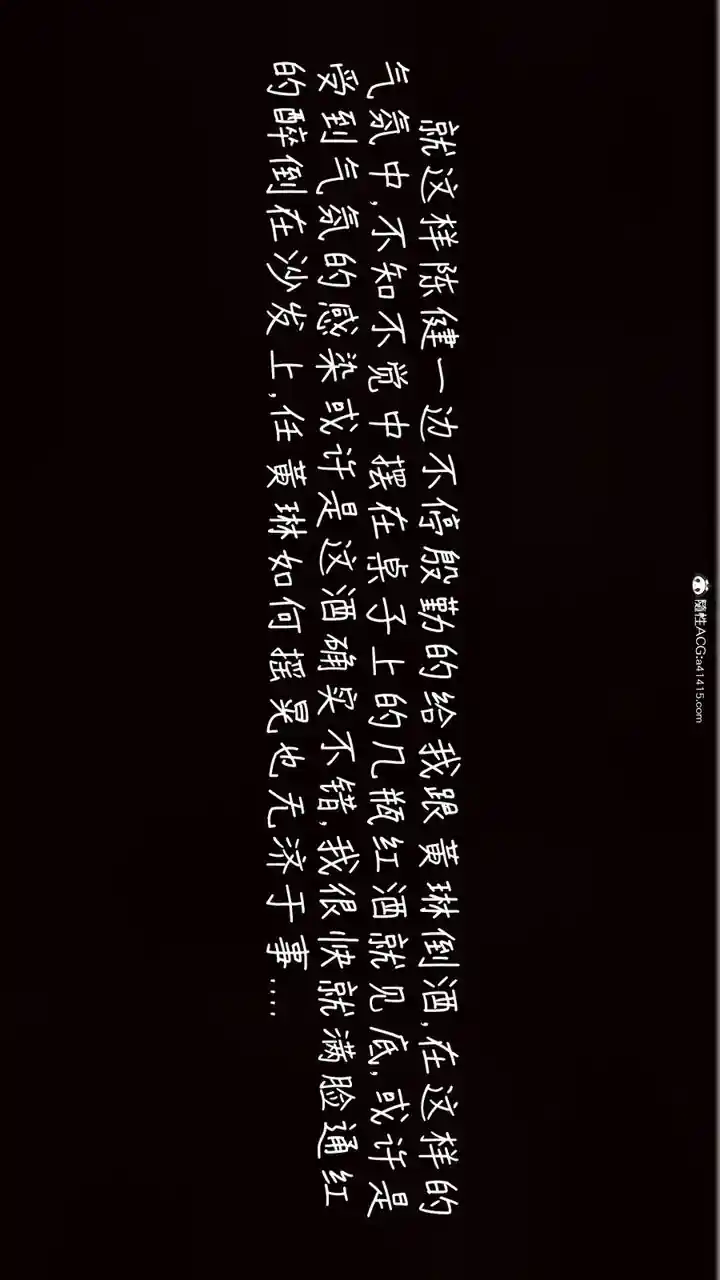 就这样陈健一边不停殷勤的给我跟黄琳倒酒,在这样的
气氛中,不知不觉中摆在桌子上的几瓶红酒就见底,或许是
受到气氛的感染或许是这酒确实不错,我很快就满脸通红
的醉倒在沙发上,任黄琳如何摇晃也无济于事.....
隨性ACG:a41415.com